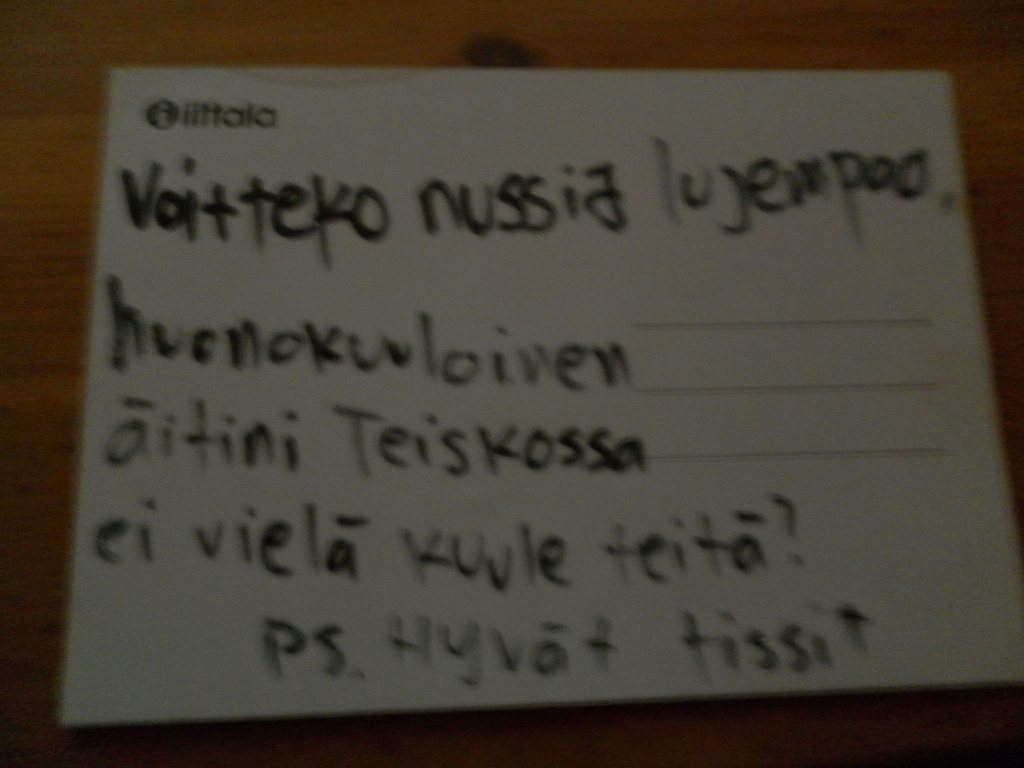 iittala
Voitteko nussia lujempaa,
huonokuuloinen
äitini Teiskossa
ei vielä kuule teitä?
ps. Hyvät tissit